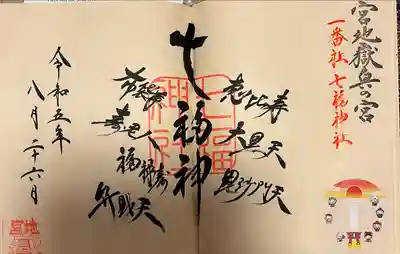 宮地嶽奥の宮
一番社七福神社
恵比寿
大黒天
毘沙門天
七福神
七福神社
布袋尊
寿老人
福禄寿
弁財天
令和五年
八月二十六日